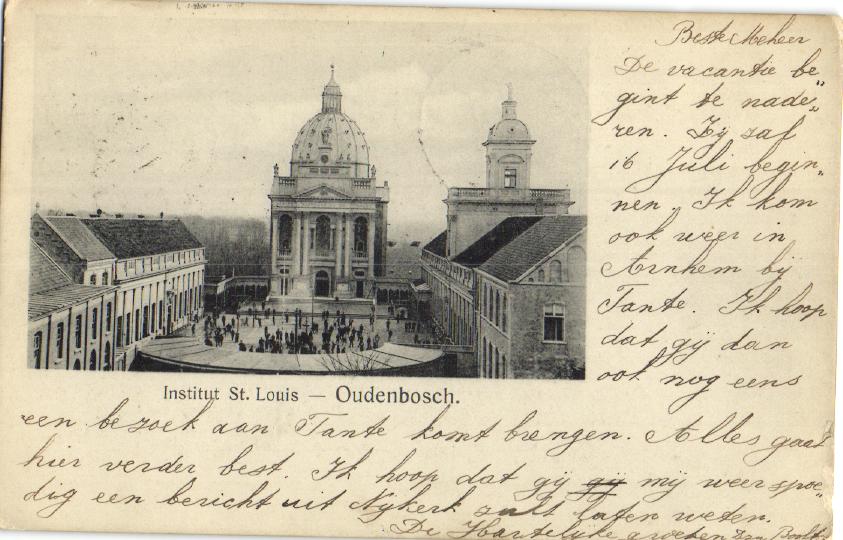 Beste Meheer
De vacantie be„
gint te nade„
ren. Zij zal
16 Juli begin„
nen. Ik kom
ook weer in
Arnhem bij
Tante. Ik hoop
dat gij dan
ook nog eens
een bezoek aan Tante komt brengen. Alles gaat
hier verder best. Ik hoop dat gij gij mij weer spoe„
dig een bericht uit Nijkerk zult laten weten.
De Hartelijke groeten van
Institut St. Louis — Oudenbosch.